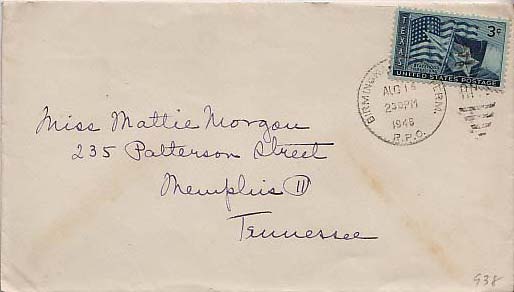 TEXAS
3¢
UNITED STATES POSTAGE
TERM.
AUG 14
230PM
1946
R.P.O.
Miss Mattie Morgan
235 Patterson Street
Memphis 11
Tennessee
938